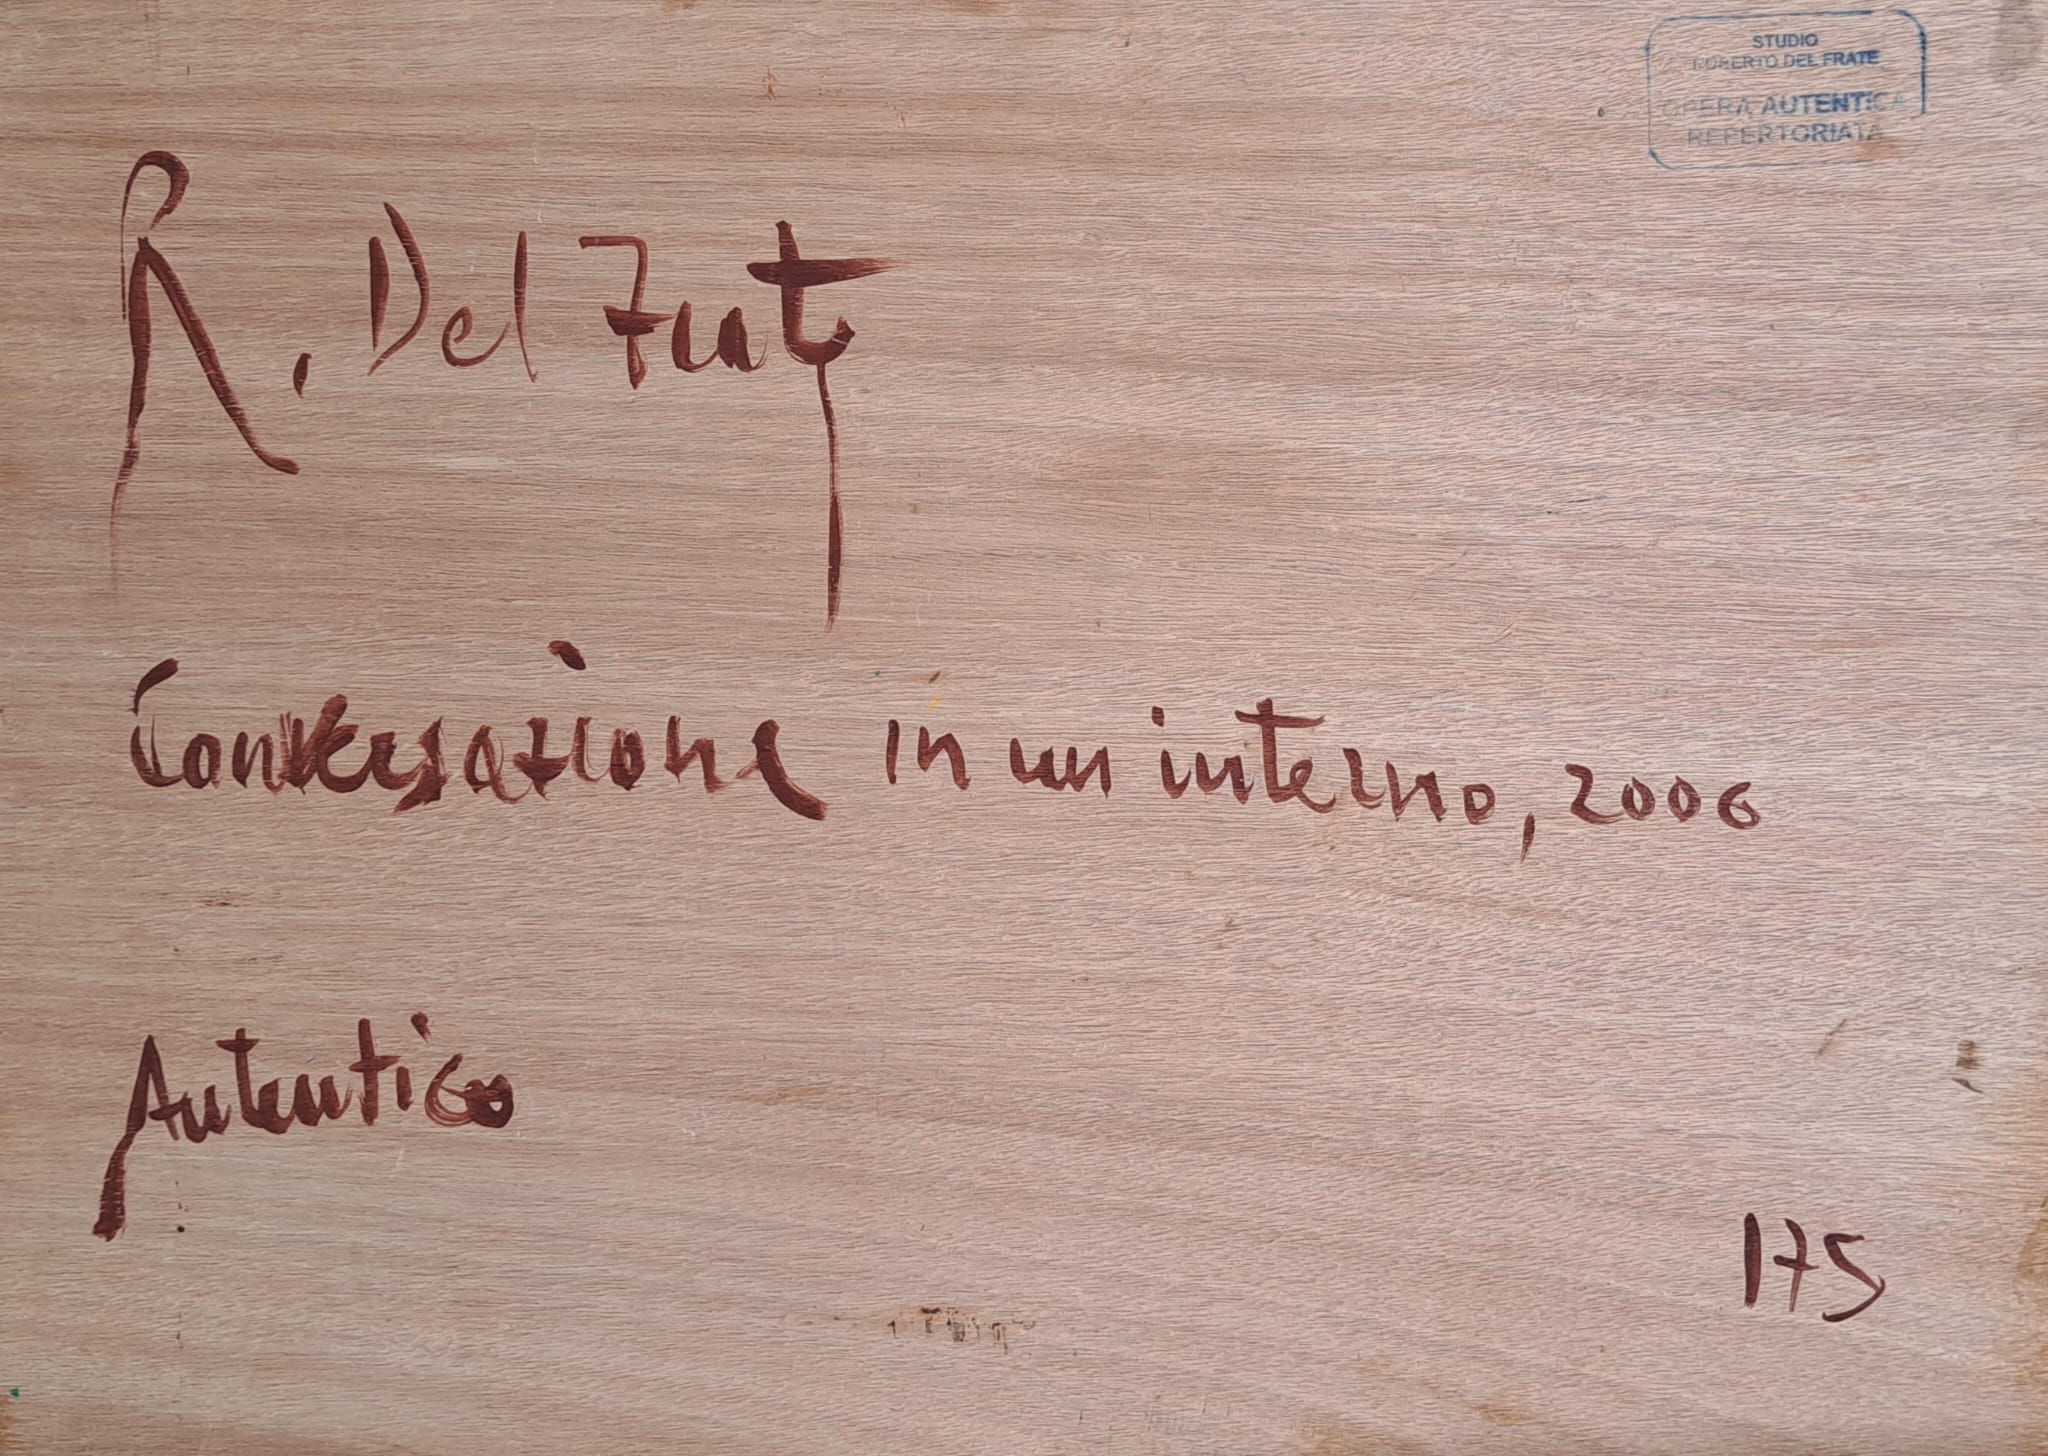 STUDIO
ROBERTO DEL FRATE
OPERA AUTENTICA
REPERTORIATA
R. Del Frate
Conversazione in un interno, 2006
Autentico
175